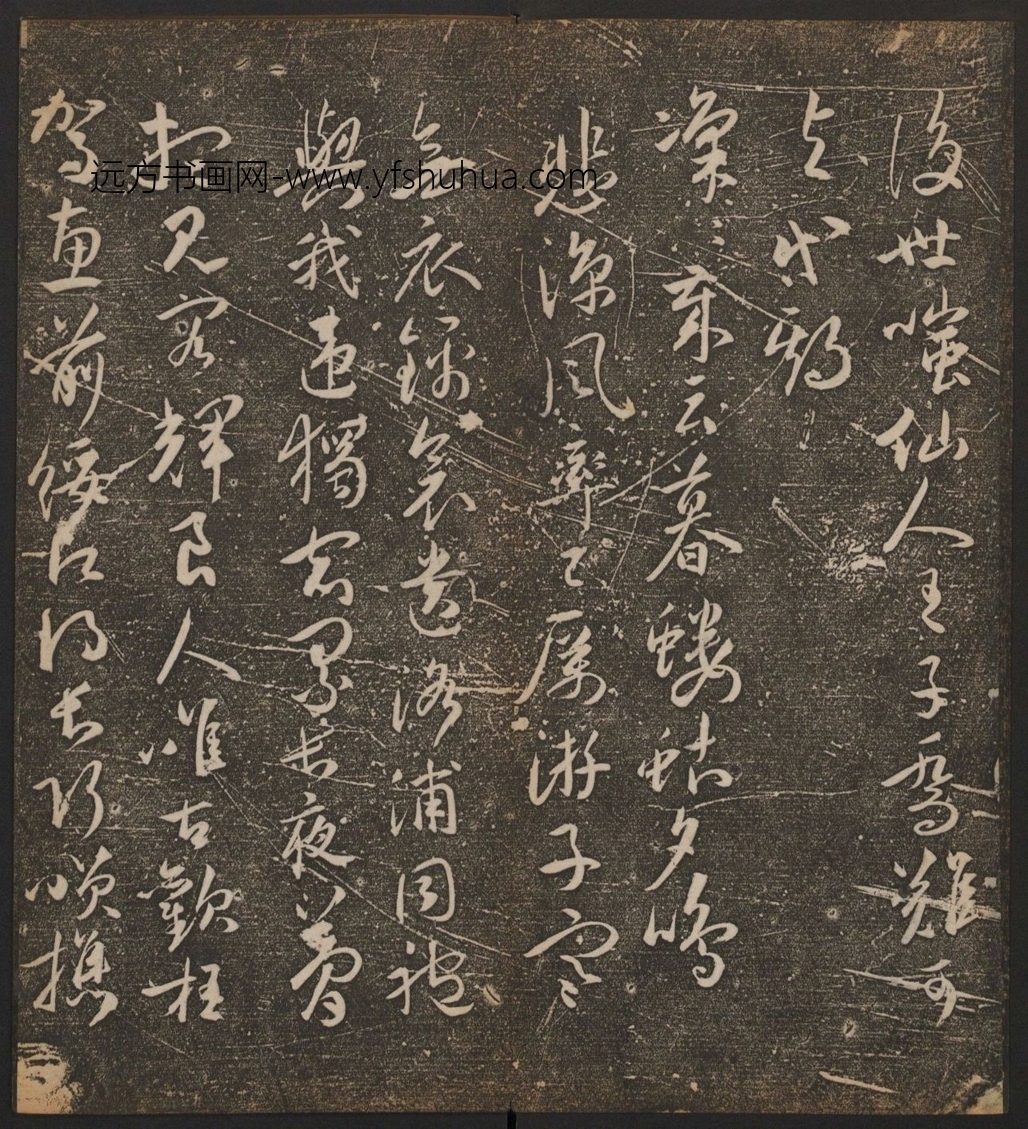 後世嗤仙人王子喬難可
与等期
凜々歲云暮螻蛄夕鳴
悲涼風率已厲游子寒
無衣錦衾遺洛浦同袍
與我違獨宿累長夜夢
想見容輝良人唯古歡枉
駕惠前綏願得長巧笑攜
远方书画网-www.yfshuhua.com